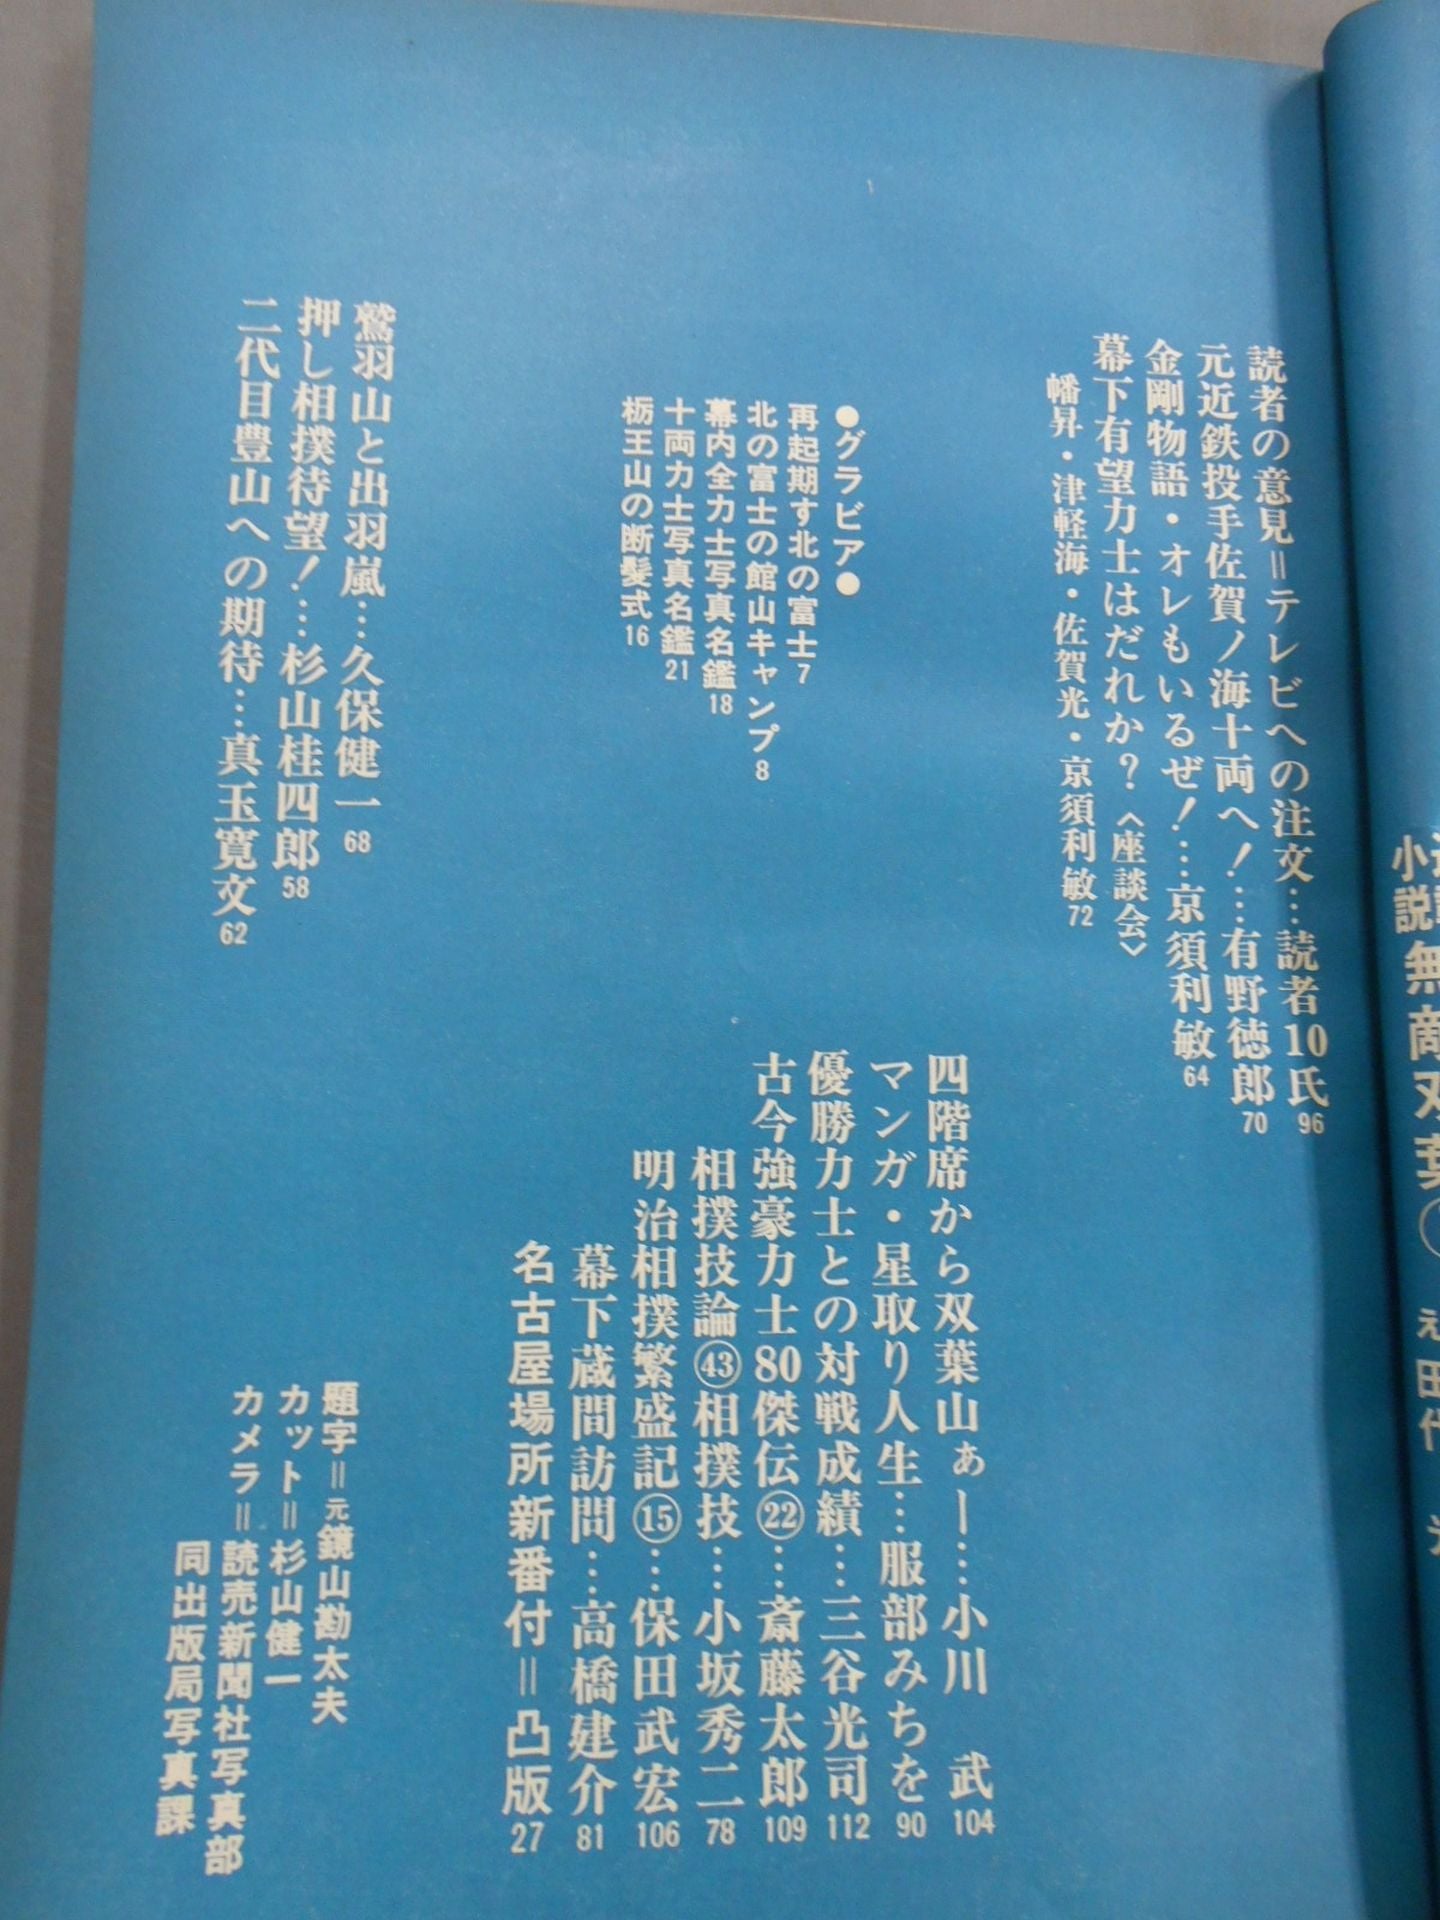 読者の意見=テレビへの注文…読者10氏96
元近鉄投手佐賀ノ海十両へ!…有野徳郎70
金剛物語・オレもいるぜ!…京須利敏64
幕下有望力士はだれか?〈座談会〉
幡昇・津軽海・佐賀光・京須利敏72
●グラビア●
再起期す北の富士7
北の富士の館山キャンプ8
幕内全力士写真名鑑18
十両力士写真名鑑21
栃王山の断髪式16
鷲羽山と出羽嵐…久保健一68
押し相撲待望!…杉山桂四郎58
二代目豊山への期待…真玉寛文62
四階席から双葉山ぁー…小川 武104
マンガ・星取り人生…服部みちを90
優勝力士との対戦成績…三谷光司112
古今強豪力士80傑伝㉒…斎藤太郎109
相撲技論㊸相撲技…小坂秀二78
明治相撲繁盛記⑮…保田武宏106
幕下蔵間訪問…高橋建介81
名古屋場所新番付=凸版27
題字=元鏡山勘太夫
カット=杉山健一
カメラ=読売新聞社写真部
同出版局写真課
小説無敵双葉